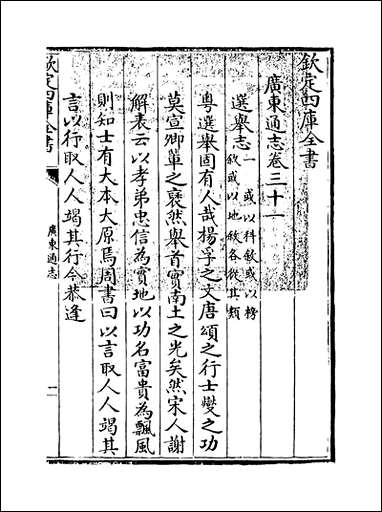 欽定四庫全書
廣東通志卷三十一
選舉志一 或以科敘或以榜
敘或以地敘各從其類
粵選舉固有人哉楊孚之文唐頌之行士燮之功
莫宣卿輩之裒然舉首實南土之光矣然宋人謝
解表云以孝弟忠信為實地以功名富貴為飄風
則知士有大本大原焉周書曰以言取人人竭其
言以行取人人竭其行今恭逢
欽定四庫全書
廣東通志
一